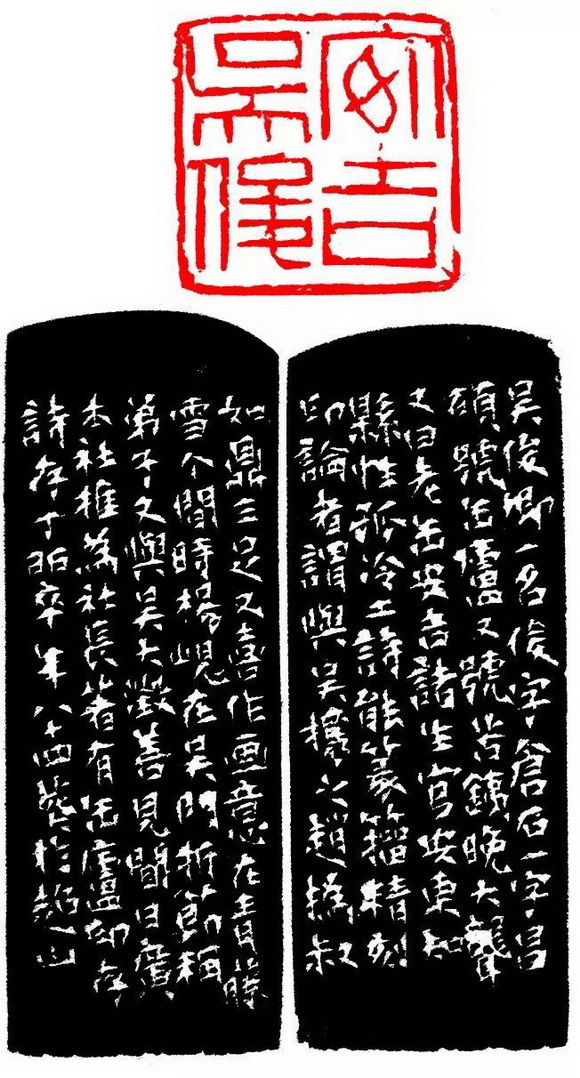 安吉
吳俊
吳俊卿一名俊字倉石一字昌
碩號缶廬又號苦鐵晚大聾
又曰老缶安吉諸生官安東知
縣性孤冷工詩能篆籀精刻
印論者謂與吳攘之趙撝叔
如鼎三足又喜作画意在青藤
雪个間時楊峴在吳門折節稱
弟子又與吳大澂善見聞日廣
本社推為社長著有缶廬印存
詩存丁卯卒年八十四葬於超山